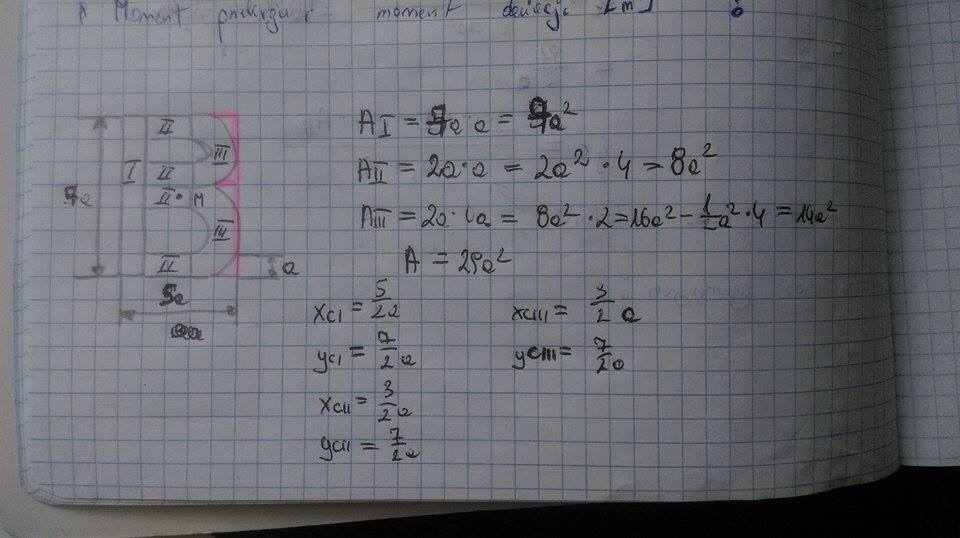 Moment i moment dewiacji [m]
A I = 9a·a = 9a²
A II = 2a·a = 2a²·4 = 8a²
A III = 2a· a = 8a²·2=16a²-1/2a²·4 = 14a²
A = 29a²
II
I II III
II • M
III
II
a
5a
xcI = 5/2a xcIII = 3/2 a
ycI = 7/2a ycIII = 7/2a
xcII = 3/2a
ycII = 7/2a